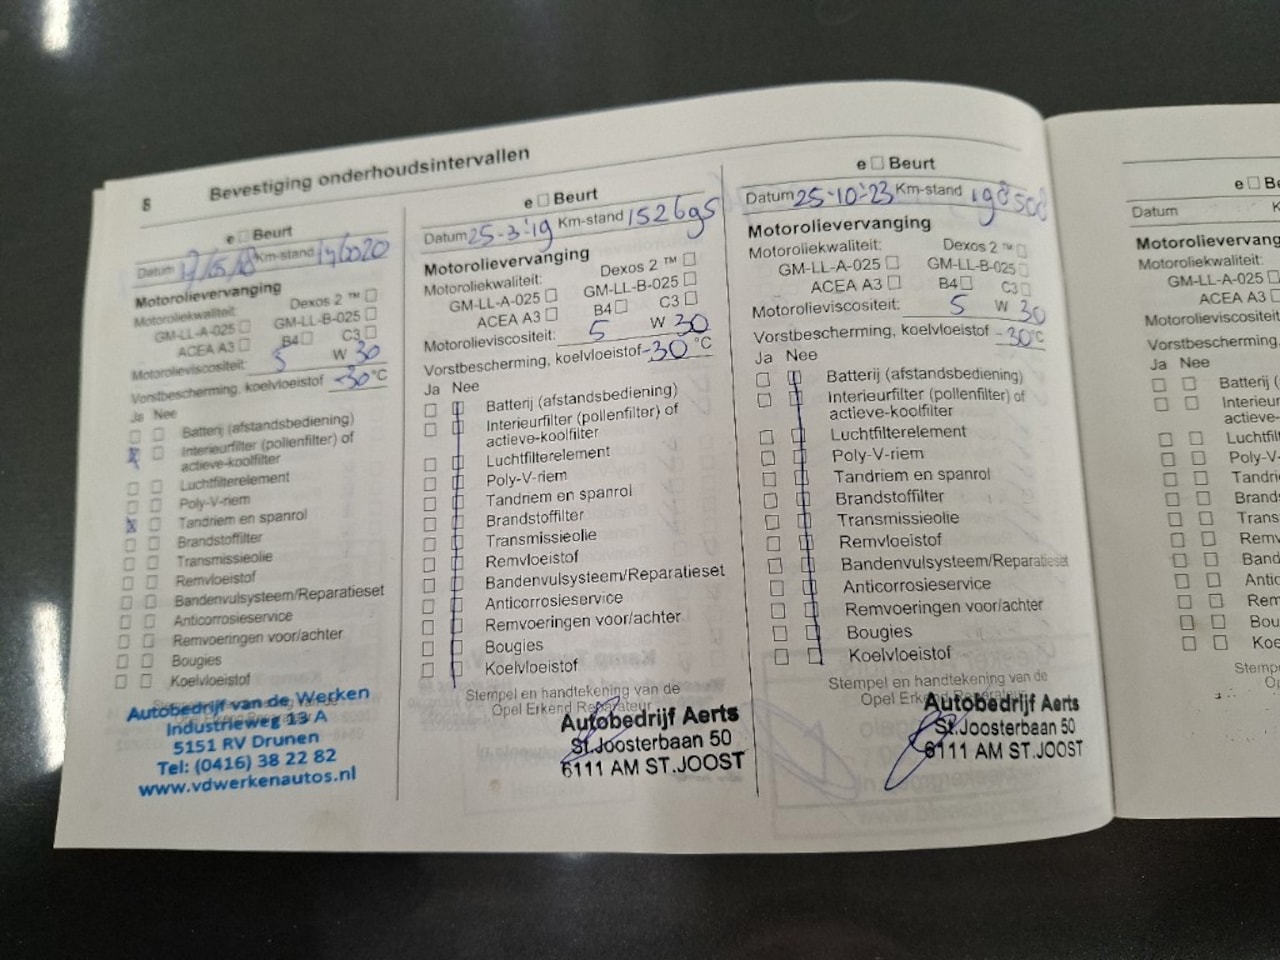 8 Bevestiging onderhoudsintervallen
e □ Beurt
Datum Km-stand
Motorolievervanging
Motoroliekwaliteit: Dexos 2 ™ □
GM-LL-A-025 □ GM-LL-B-025 □
ACEA A3 □ B4 □ C3 □
Motorolieviscositeit: 5 W 30
Vorstbescherming, koelvloeistof -30 °C
Ja Nee
Batterij (afstandsbediening)
Interieurfilter (pollenfilter) of
actieve-koolfilter
Luchtfilterelement
Poly-V-riem
Tandriem en spanrol
Brandstoffilter
Transmissieolie
Remvloeistof
Bandenvulsysteem/Reparatieset
Anticorrosieservice
Remvoeringen voor/achter
Bougies
Koelvloeistof
Autobedrijf van de Werken
Industrieweg 13 A
5151 RV Drunen
Tel: (0416) 38 22 82
www.vdwerkenautos.nl
e □ Beurt
Datum 25-3-'19 Km-stand 152695
Motorolievervanging
Motoroliekwaliteit: Dexos 2 ™ □
GM-LL-A-025 □ GM-LL-B-025 □
ACEA A3 □ B4 □ C3 □
Motorolieviscositeit: 5 W 30
Vorstbescherming, koelvloeistof -30 °C
Ja Nee
Batterij (afstandsbediening)
Interieurfilter (pollenfilter) of
actieve-koolfilter
Luchtfilterelement
Poly-V-riem
Tandriem en spanrol
Brandstoffilter
Transmissieolie
Remvloeistof
Bandenvulsysteem/Reparatieset
Anticorrosieservice
Remvoeringen voor/achter
Bougies
Koelvloeistof
Stempel en handtekening van de
Opel Erkend Reparateur
Autobedrijf Aerts
St.Joosterbaan 50
6111 AM ST.JOOST
e □ Beurt
Datum 25-10-'23 Km-stand 198508
Motorolievervanging
Motoroliekwaliteit: Dexos 2 ™ □
GM-LL-A-025 □ GM-LL-B-025 □
ACEA A3 □ B4 □ C3 □
Motorolieviscositeit: 5 W 30
Vorstbescherming, koelvloeistof -30 °C
Ja Nee
Batterij (afstandsbediening)
Interieurfilter (pollenfilter) of
actieve-koolfilter
Luchtfilterelement
Poly-V-riem
Tandriem en spanrol
Brandstoffilter
Transmissieolie
Remvloeistof
Bandenvulsysteem/Reparatieset
Anticorrosieservice
Remvoeringen voor/achter
Bougies
Koelvloeistof
Stempel en handtekening van de
Opel Erkend Reparateur
Autobedrijf Aerts
St.Joosterbaan 50
6111 AM ST.JOOST
e □ Be
Datum K
Motorolievervang
Motoroliekwaliteit:
GM-LL-A-025 □
ACEA A3 □
Motorolieviscositeit
Vorstbescherming,
Ja Nee
Batterij (
Interieur
actieve-k
Luchtfil
Poly-V-
Tandri
Brand
Trans
Remv
Band
Antic
Rem
Bou
Koe
Stemp
Op